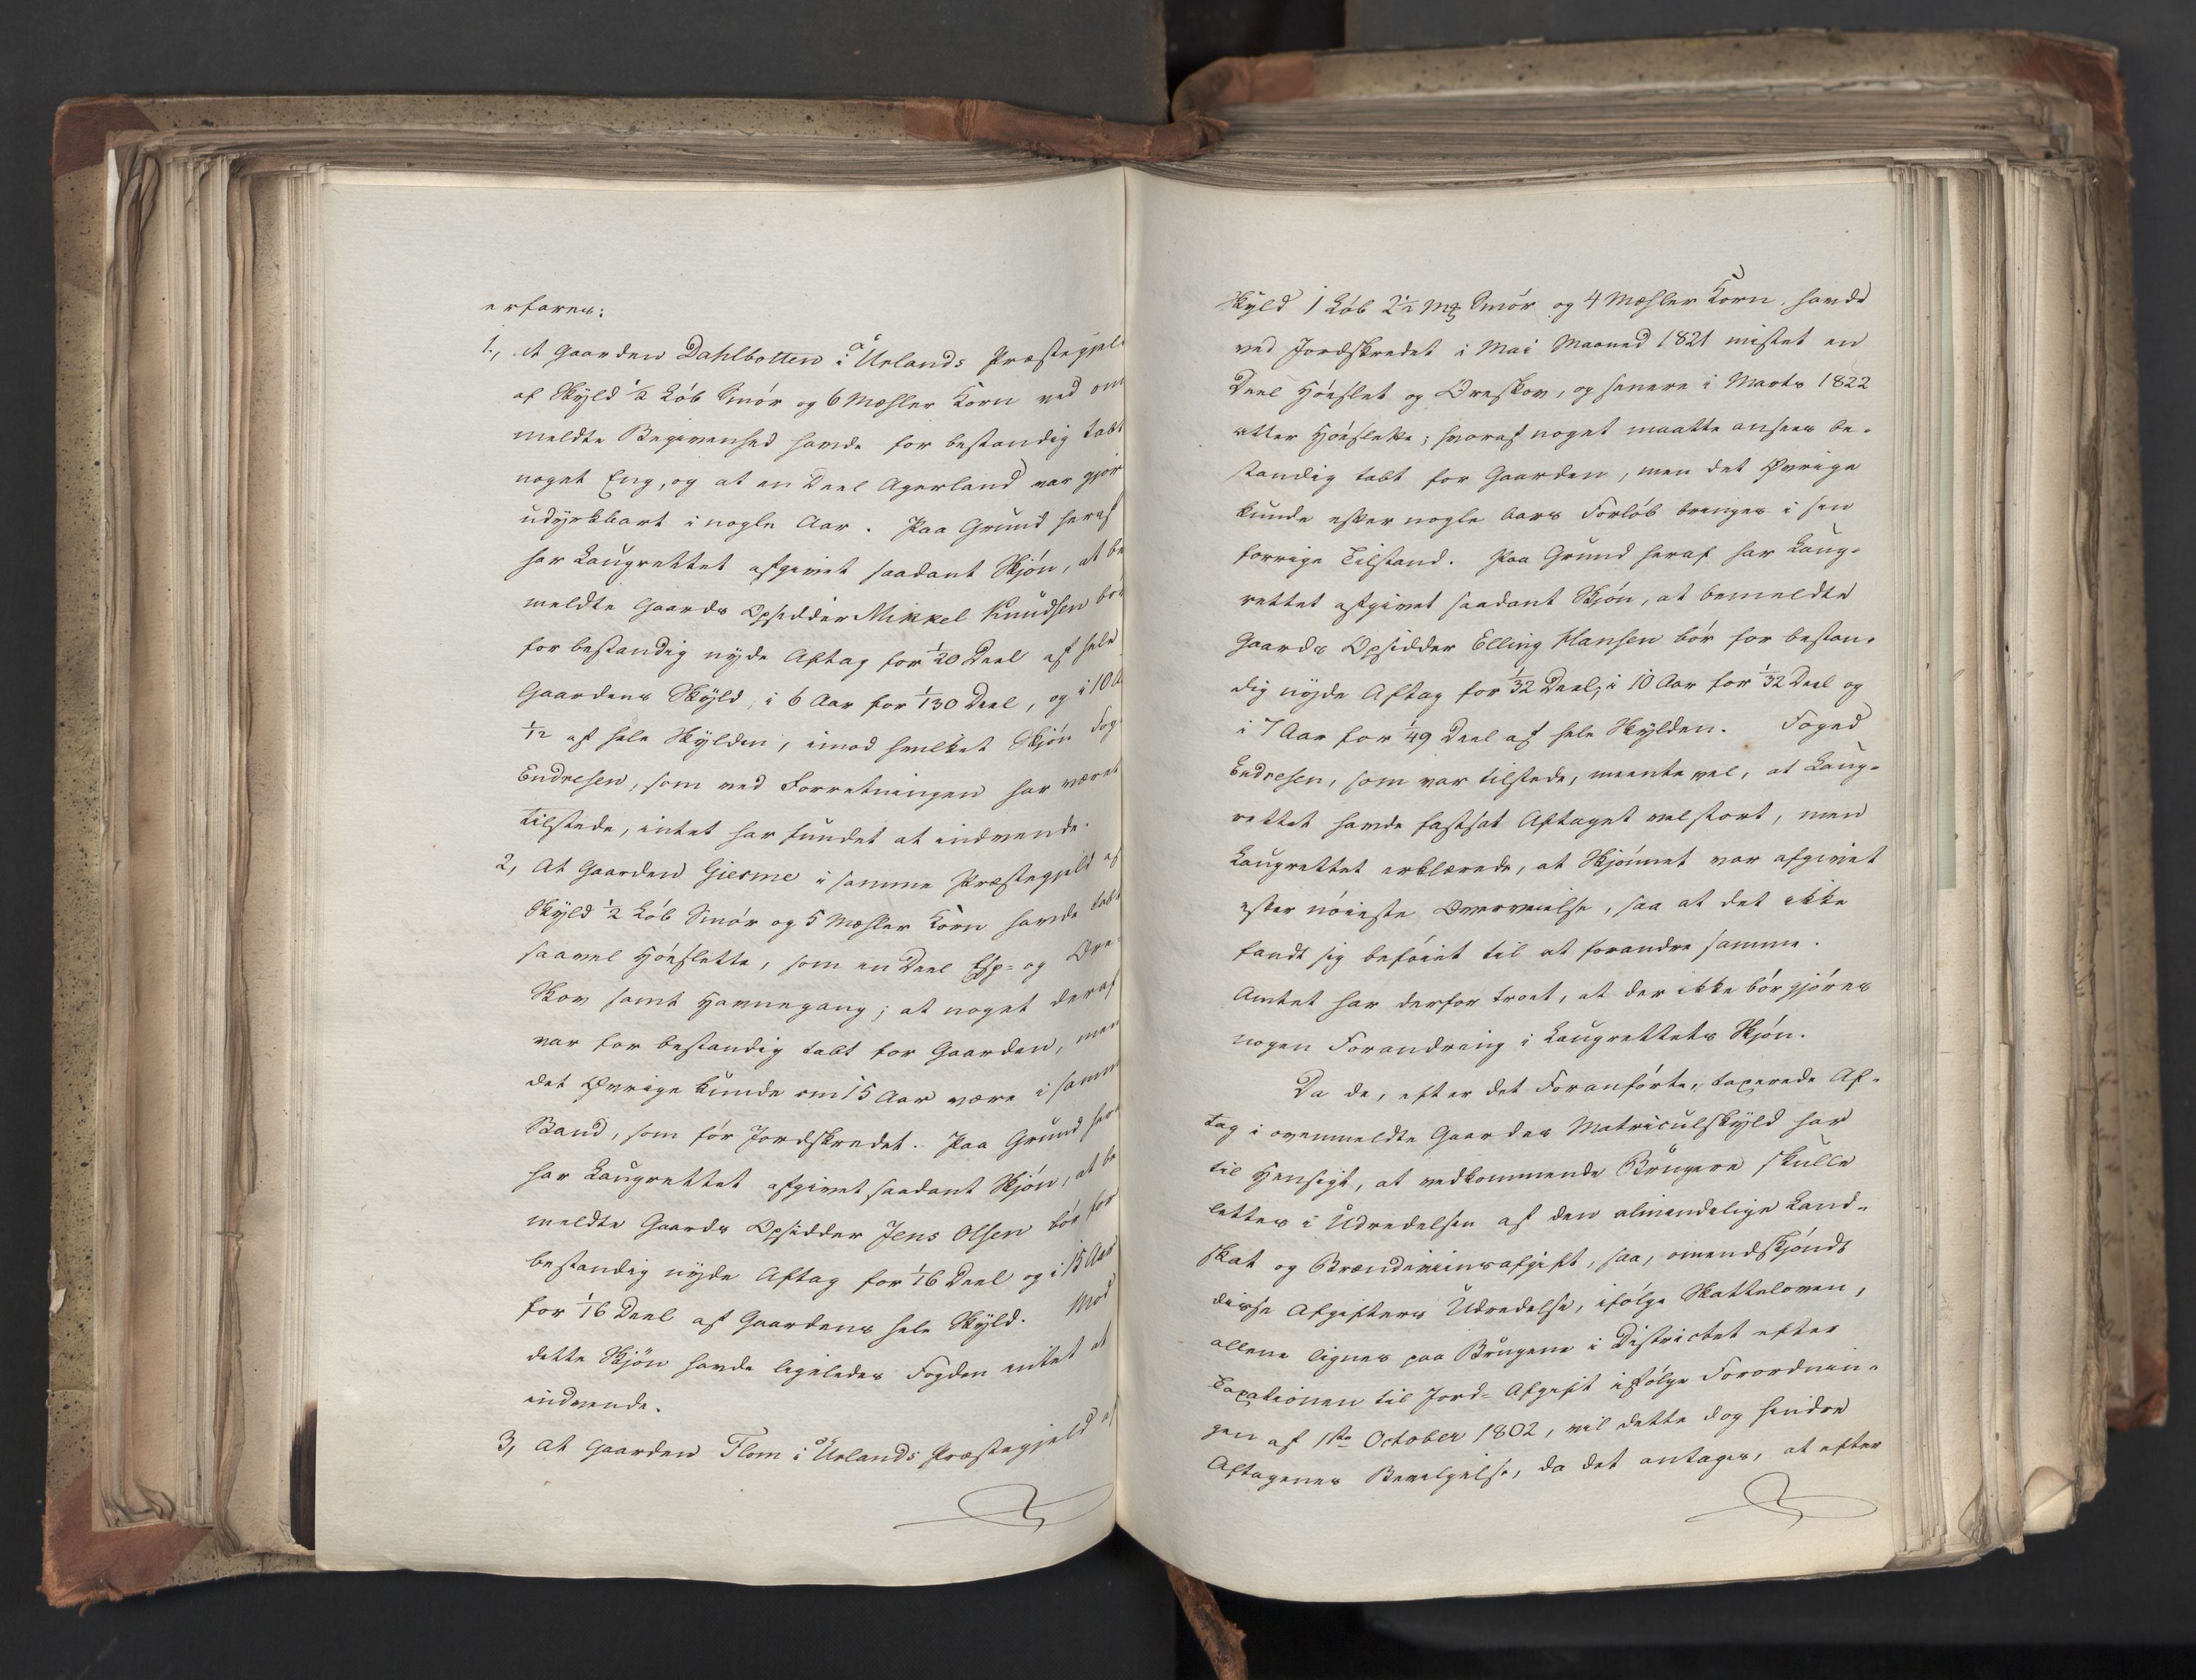 erfares:
1., at Gaarden Dahlbotten i Urlands Præstegjeld
af Skyld ½ Løb Smør og 6 Mæhler Korn ved om
meldte Begivenhed havde for bestandig tabt
noget Eng, og at en Deel Agerland var gjor
udyrkbart i nogle Aar. Paa Grund heraf
har Laugrettet afgivet saadant Skjøn, at be
meldte Gaards Opsidder Mikkel Knudsen bør
for bestandig nyde Aftag for 1/20 Deel af hele
Gaardens Skyld, i 6 Aar for 1/130 Deel, og i 10 A
1/12 af hele Skylden, imod hvilket Skjøn Fog
Endresen, som ved Forretningen har været
tilstede, intet har fundet at indvende.
2, At Gaarden Giesme i samme Præstegjeld af
Skyld ½ Løb Smør og 5 Mæhler Korn havde tabt
saavel Høeslette, som en Deel Esp- og Ore-
Skov samt Havnegang; at noget deraf
var for bestandig tabt for Gaarden, men
det Øvrige kunde om 15 Aar være i samme
Stand, som før Jordskredet. Paa Grund her
har Laugrettet afgivet saadant Skjøn, at be
meldte Gaards Opsidder Jens Olsen bør for
bestandig nyde Aftag for 1/16 Deel og i 15 Aar
for 1/16 Deel af Gaardens hele Skyld. Mod
dette Skjøn havde ligeledes Fogden intet at
indvende.
3, at Gaarden Flom i Urlands Præstegjeld af
Skyld 1 Løb 2½ Mk Smør og 4 Mæhler Korn, havde
ved Jordskredet i Mai Maaned 1821 mistet en
Deel Høeslet og Oreskov, og senere i Marts 1822
atter Høeslette; hvoraf noget maatte ansees be-
standig tabt for Gaarden, men det Øvrige
kunde efter nogle Aars Forløb bringes i sin
forrige Tilstand. Paa Grund heraf har Laug-
rettet afgivet saadant Skjøn, at bemeldte
Gaards Opsidder Elling Hansen bør for bestan-
dig nyde Aftag for 1/32 Deel, i 10 Aar for 1/32 Deel og
i 7 Aar for 1/49 Deel af hele Skylden. Foged
Endresen, som var tilstede, meente vel, at Laug-
rettet havde fastsat Aftaget vel stort, men
Laugrettet erklærede, at Skjønnet var afgivet
efter nøieste Overveielse, saa at det ikke
fandt sig beføiet til at forandre samme.
Amtet har derfor troet, at der ikke bør gjøres
nogen Forandring i Laugrettets Skjøn.
Da de, efter det Foranførte, taxerede Af-
tag i ovenmeldte Gaardes Matriculskyld har
til Hensigt, at vedkommende Brugere skulle
lettes i Udredelsen af den almindelige Land-
skat og Brændeviinsafgift, saa, omendskjøndt
disse Afgifters Udredelse, ifølge Skatteloven,
allene lignes paa Brugene i Districtet efter
Taxationen til Jord-Afgift ifølge Forordnin-
gen af 1ste October 1802, vil dette dog hindre
Aftagenes Bevilgelse, da det antages, at efter